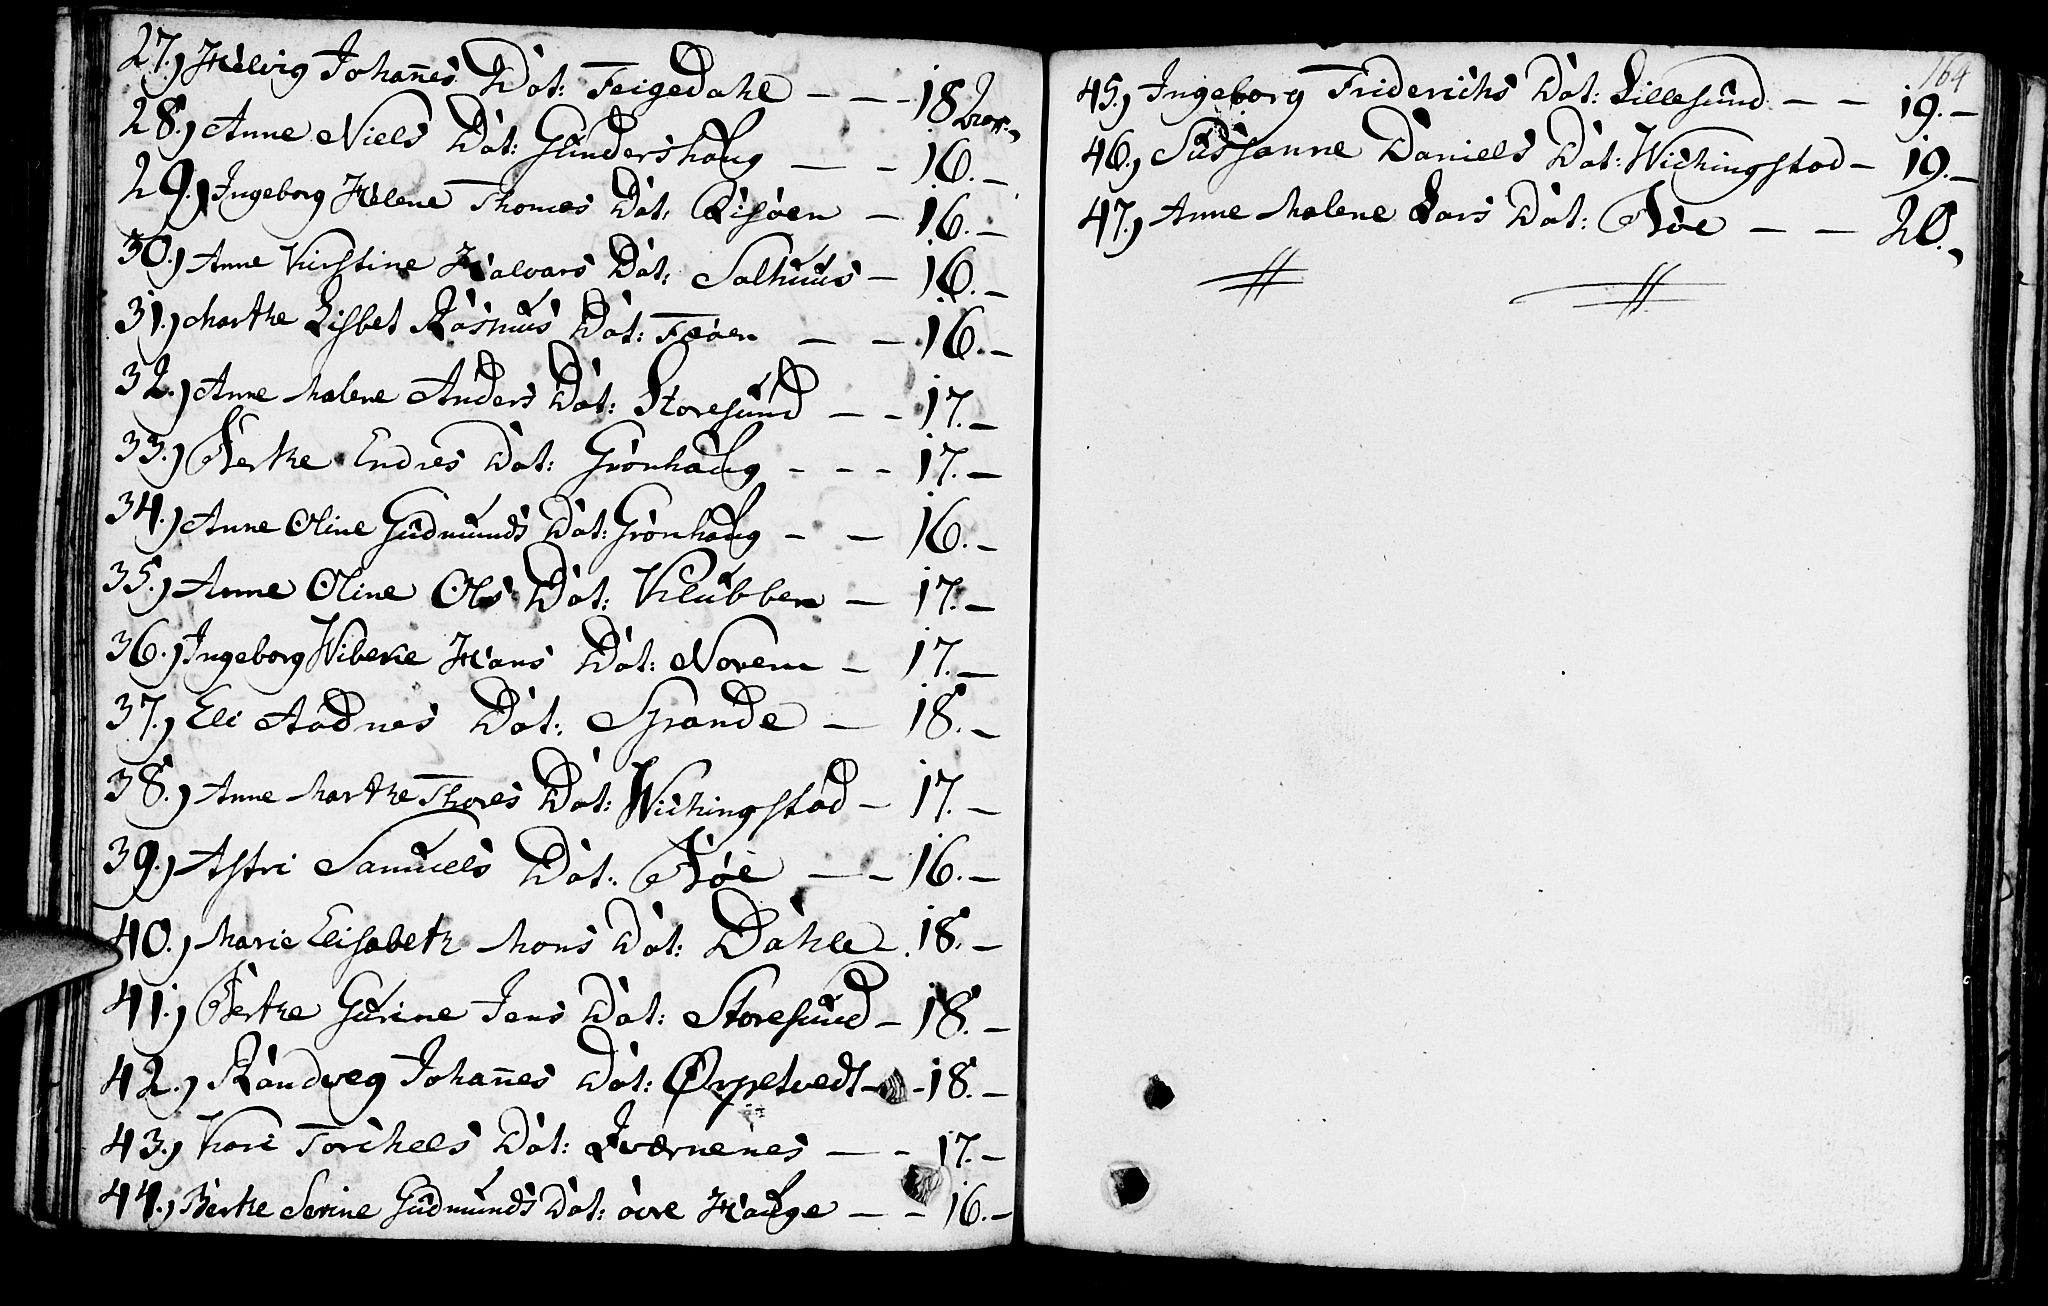 27.) Helvig Johan̄es Dat: Feigedahl - - - 18 aar.
28.) Anne Niels Dat: Gundershaug - - 16. -
29.) Ingeborg Helene Thomas Dat: Risøen - 16. -
30.) Anne Kirstine Halvars Dat: Salhuus - 16. -
31.) Marthe Lisbet Rasmus Dat: Feøen - - 16. -
32.) Anne Malene Anders Dat: Storesund - - 17. -
33.) Berthe Endres Dat: Grønhaug - - - 17. -
34.) Anne Oline Gudmunds Dat: Grønhaug - - 16. -
35.) Anne Oline Ols Dat: Klubben - 17. -
36.) Ingeborg Wibeke Hans Dat: Norem - 17. -
37.) Eli Aadnes Dat: Spande - 18. -
38.) Anne Marthe Thores Dat: Wichingstad - 17. -
39.) Astri Samuels Dat: Bøe - - 16. -
40.) Marie Elisabeth Mons Dat: Dahle. 18. -
41.) Berthe Gurine Jens Dat: Storesund - 18. -
42.) Randveg Johan̄es Dat: Ørpetvedt - - 18. -
43.) Kari Torchels Dat: Qværnenes - - 17. -
44.) Berthe Serine Gudmunds Dat: øvre Hauge - - 16. -
164
45.) Ingeborg Friderichs Dat: Lillesund - - 19. -
46.) Sussanne Daniels Dat: Wichingstad - 19. -
47.) Anne Malene Lars Dat: Bøe - - 20.